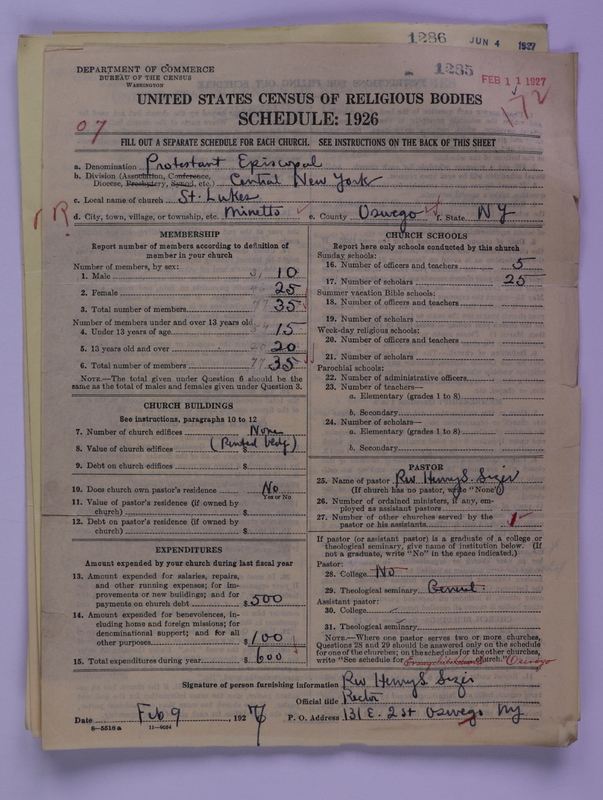 1286 JUN 4 1927
DEPARTMENT OF COMMERCE
BUREAU OF THE CENSUS
WASHINGTON
1285 FEB 11 1927
172
UNITED STATES CENSUS OF RELIGIOUS BODIES
SCHEDULE: 1926
07
FILL OUT A SEPARATE SCHEDULE FOR EACH CHURCH. SEE INSTRUCTIONS ON THE BACK OF THIS SHEET
a. Denomination Protestant Episcopal
b. Division (Association, Conference,
Diocese, Presbytery, Synod, etc.) Central New York
c. Local name of church St. Lukes
R
d. City, town, village, or township, etc. Minetto e. County Oswego f. State NY
MEMBERSHIP
Report number of members according to definition of
member in your church
Number of members, by sex:
1. Male 10
2. Female 25
3. Total number of members 35
Number of members under and over 13 years old:
4. Under 13 years of age 15
5. 13 years old and over 20
6. Total number of members 35
NOTE.—The total given under Question 6 should be the
same as the total of males and females given under Question 3.
CHURCH BUILDINGS
See instructions, paragraphs 10 to 12
7. Number of church edifices None
8. Value of church edifices $ (Rented bldg)
9. Debt on church edifices $
10. Does church own pastor's residence No
Yes or No
11. Value of pastor's residence (if owned by
church) $
12. Debt on pastor's residence (if owned by
church) $
EXPENDITURES
Amount expended by your church during last fiscal year
13. Amount expended for salaries, repairs,
and other running expenses; for im-
provements or new buildings; and for
payments on church debt $500
14. Amount expended for benevolences, in-
cluding home and foreign missions; for
denominational support; and for all
other purposes $100
15. Total expenditures during year $600
CHURCH SCHOOLS
Report here only schools conducted by this church
Sunday schools:
16. Number of officers and teachers 5
17. Number of scholars 25
Summer vacation Bible schools:
18. Number of officers and teachers
19. Number of scholars
Week-day religious schools:
20. Number of officers and teachers
21. Number of scholars
Parochial schools:
22. Number of administrative officers
23. Number of teachers—
a. Elementary (grades 1 to 8)
b. Secondary
24. Number of scholars—
a. Elementary (grades 1 to 8)
b. Secondary
PASTOR
25. Name of pastor Rev Henry S. Sizer
(If church has no pastor, write "None")
26. Number of ordained ministers, if any, em-
ployed as assistant pastors
27. Number of other churches served by the
pastor or his assistants 1
If pastor (or assistant pastor) is a graduate of a college or
theological seminary, give name of institution below. (If
not a graduate, write "No" in the space indicated.)
Pastor:
28. College No
29. Theological seminary General
Assistant pastor:
30. College
31. Theological seminary
NOTE.—Where one pastor serves two or more churches,
Questions 28 and 29 should be answered only on the schedule
for one of the churches; on the schedules for the other churches,
write "See schedule for Church." Oswego
Signature of person furnishing information Rev Henry S. Sizer
Official title Rector
Date Feb 9, 1927 P. O. Address 131 E. 2 St Oswego NY
8—5518 a 11—9034